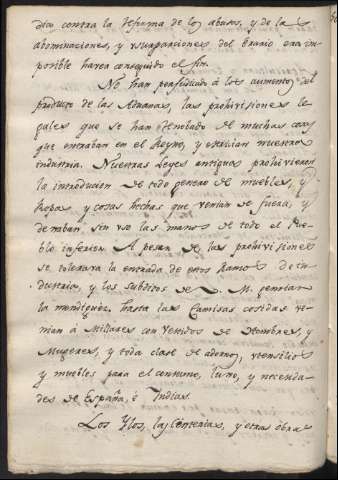 dios contra la reforma de los abusos, y de la
abominaciones, y usurpaciones del Erario era im
posible haver conseguido el fin.
No han perjudicado à los aumentos del
producto de las Aduanas, las prohiviciones le
gales que se han renobado de muchas cosas
que entraban en el Reyno, y estavian nuestra
industria. Nuestras Leyes antiguas prohivieron
la introducion de todo genero de muebles, y
Ropas y cosas hechas que venian de fuera, y
demban, sin uso las manos de todo el Pue
blo inferior. A pesar de las prohiviciones
se tolerava la entrada de estos Ramos de in
dustria, y los subditos de V. M. pensian
la mendiguez. hasta las Camisas cosidas ve
nian à Millares con Vestidos de Hombres, y
Mugeres, y toda clase de adorno, utensilios
y muebles para el comun, luxo, y necesida
des de España, è Indias.
Los Ylos, las Conterias, y otras obras